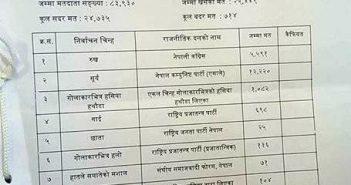 जम्मा मतदाता संख्या : ८३,९३०
जम्मा खसेको मत :
कूल सदर मत : २४,७३५
कूल बदर मत : ७१४
क्र.सं. निर्वाचन चिन्ह राजनीतिक दलको नाम जम्मा मत कैफियत
१ रुख नेपाली काँग्रेस ५,५९१
२ सूर्य नेपाल कम्युनिष्ट पार्टी (एमाले) १२,२२०
३ गोलाकारभित्र हसिया हथौडा एकल चिन्ह गोलाकारभित्रको हसिया हथौडा लिएका १,०८२
४ गाई राष्ट्रिय प्रजातन्त्र पार्टी ६९८
५ छाता राष्ट्रिय जनता पार्टी नेपाल २५
६ गोलाकारभित्र हलो राष्ट्रिय प्रजातन्त्र पार्टी (प्रजातान्त्रिक) ११६
७ हातले समातेको मशाल संघीय समाजवादी फोरम, नेपाल ७१
१०४